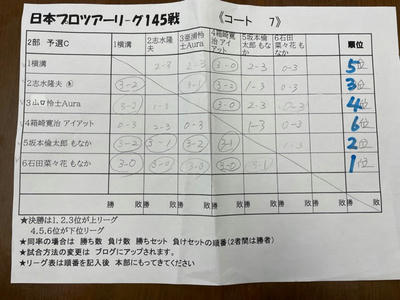 日本プロツアーリーグ145戦 《コート 7》
2部 予選C 1横溝 2志水隆夫 3 士Aura 4箱崎寛治 アイアット 5坂本倫太郎 もなか 6石田菜々花 もなか 順位
1横溝 2-3 2-3 3-0 2-3 0-3 5位
2志水隆夫 3-2 3-1 3-2 1-3 0-3 3位
3山口 怜士Aura 3-2 1-3 3-0 2-3 0-3 4位
4箱崎寛治 アイアット 0-3 2-3 0-3 1-3 0-3 6位
5坂本倫太郎 もなか 3-2 3-1 3-2 3-1 2位
6石田菜々花 もなか 3-0 3-0 3-0 3-0 3-1 1位
勝 敗 勝 敗 勝 敗 勝 敗 勝 敗 勝 敗
★決勝は1,2,3位が上リーグ
4,5,6位が下位リーグ
★同率の場合は 勝ち数 負け数 勝ちセット 負けセットの順番(2者間は勝者)
★試合方法の変更は ブログにアップされます。
★リーグ表は順番を記入後 本部にもってきてください